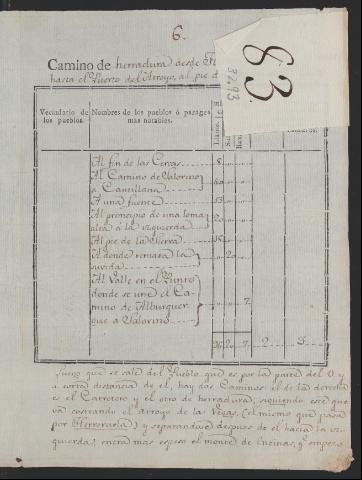 6.
Camino de herradura desde
hasta el Puerto del Arroyo, al pie d
83
32.193
Vecindario de los pueblos.
Nombres de los pueblos ó parages mas notables.
Llano
Al fin de las Cercas 8
Al Camino de Salorino
á Cantillana
A una fuente 13
Al principio de una loma
alta á la izquierda
Al pie de la Sierra 15
A donde remata la
suvida 20
Al Valle en el Punto
donde se une el Ca-
mino de Alburquer-
que a Salorino 7
20 7 2 3
luego que se sale del Pueblo que es por la parte del O. y
á corta distancia de el, hay dos Caminos el de la derecha
es el Carretero y el otro de herradura; siguiendo este que
va costeando el arroyo de las Vegas (el mismo que pasa
por Herreruela) y separandose despues de el hacia la iz-
quierda; entra mas espeso el monte de Encinas, y empera